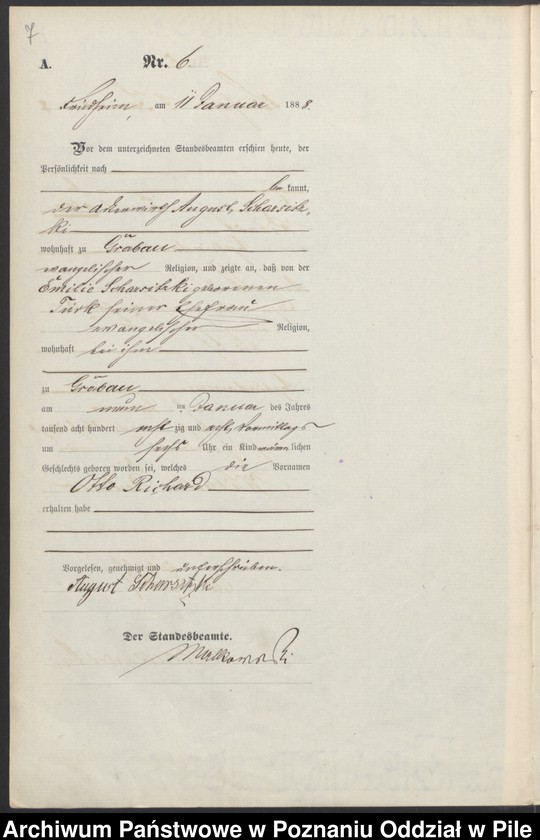 7
A. Nr. 6.
Friedheim, am 11 Januar 1888.
Vor dem unterzeichneten Standesbeamten erschien heute, der
Persönlichkeit nach
be kannt,
der August
ki
wohnhaft zu Grabau
evangelischer Religion, und zeigte an, daß von der
Emilie geborenen
Türk seiner Ehefrau
evangelischer Religion,
wohnhaft bei ihm
zu Grabau
am neun ten Januar des Jahres
tausend acht hundert acht zig und acht, Vormittags
um sechs Uhr ein Kind männ lichen
Geschlechts geboren worden sei, welches die Vornamen
Otto Richard
erhalten habe
Vorgelesen, genehmigt und unterschrieben.
August
Der Standesbeamte.
Malkowski
Archiwum Państwowe w Poznaniu Oddział w Pile